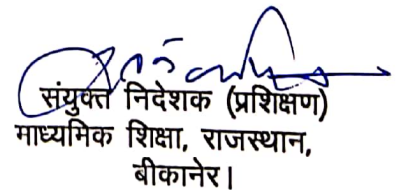 संयुक्त निदेशक (प्रशिक्षण)
माध्यमिक शिक्षा, राजस्थान,
बीकानेर।